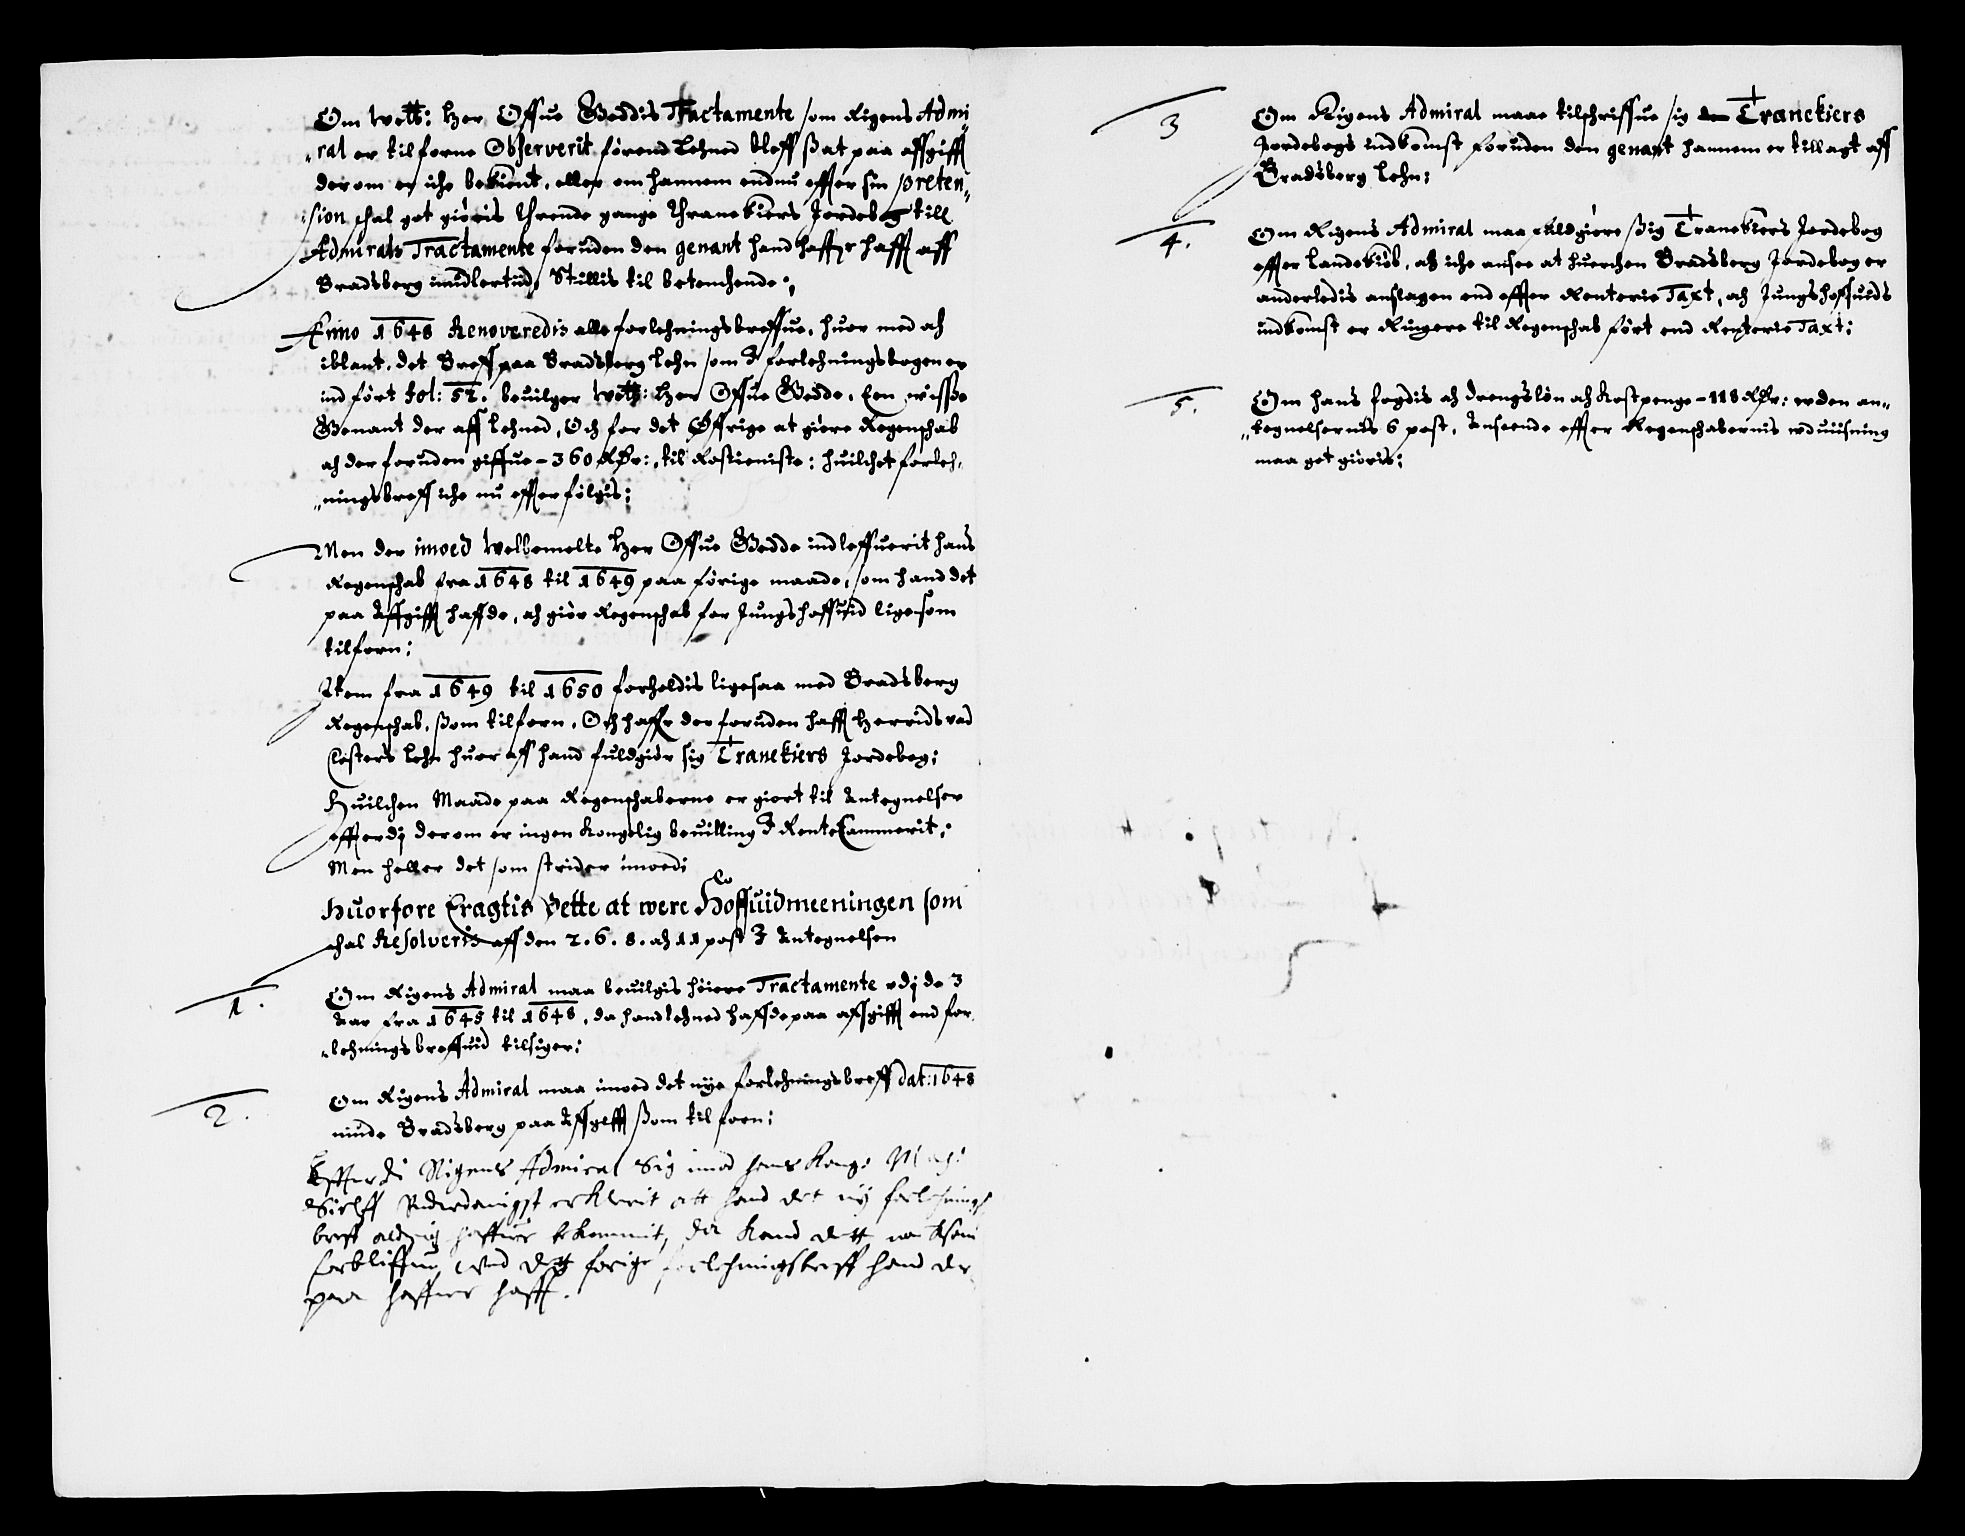 Om Welb: Her Offue Geddis Tractamente som Rigens Admi
„ral er tilforne Observerit førend Lehned bleff ßat paa affgifft
derom er iche bekient, eller om hannem endnu effter sin preten„
„sion schal got giøris Thrende gange Thranekiers Jordebog till
Admirals Tractamente foruden den genant hand haffr hafft aff
Bradsberg imidlertid, Stillis til betenchende;
Anno 1648 Renoveredis alle forlehningsbreffue, huor med och
iblant, det Breff paa Bradsberg Lehn som J forlehningsbogen er
indført fol: 52. beuilger Welb: Her Offue Gedde, Een wisße
Genant der aff Lehned, Och for det Øffrige at giøre Regenschab
och der foruden giffue – 360 Rdr:, til Rostieniste: huilchet forleh„
„ningsbreff iche nu effterfølgis;
Men der imoed Welbemelte Her Offue Gedde indleffuerit hans
Regenschab fra 1648 til 1649 paa førige maade, som hand det
paa Affgifft haffde, och giør Regenschab for Jungshoffuid ligesom
tilforn;
Item fra 1649 til 1650 forholdis ligesaa med Bradsberg
Regenschab, ßom tilforn, Och haffr der foruden hafft Herridsvad
Closters Lehn huor aff hand fuldgiør sig Tranekiers Jordebog;
Huilchen Maade paa Regenschaberne er giort til Antegnelser
efftterdj derom er ingen Kongelig beuilling J RenteCammerit;
Men heller det som strider imoed;
Huorfore Eragtis Dette at were Hoffuidmeeningen som
schal Resolveris aff den 2. 6. 8. och 11 post J Antegnelsen
1. Om Rigens Admiral maa beuilgis høiere Tractamente vdj de 3
Aar fra 1645 til 1648, da hand Lehned hafde paa afgifft end for„
„lehningsbreffuid tilsiger;
2. Om Rigens Admiral maa imoed det nye forlehningsbreff dat: 1648
niude Bradsberg paa Affgifft ßom tilforn;
Effterdi Rigens Admiral Sig imod hans Konge Maj:
Sielff Vnderdanigst erklerit att hand det ny forlehnings
breff aldrig haffuer bekommit, da kand dett
forbliffue, ved dett forige forlehningsbreff hand der
paa haffuer hafft.
3 Om Rigens Admiral maae tilschriffue sig Tranekiers
Jordebogs indkomst foruden den genant hannem er tillagt aff
Bradsberg Lehn;
4. Om Rigens Admiral maa fuldgiøre ßig Tranekiers Jordebog
effter Landekiøb, och iche ansee at huerchen Bradsberg Jordebog er
anderledis anslagen end effter Renterie Taxt, och Jungshoffuids
indkomst er Ringere til Regenschab ført end Renterie Taxt;
5. Om hans fogdis och drengsløn och Kostpenge – 118 Rdr: vden an„
„tegnelsernis 6 post, Anseende effter Regenschabernis vduiisning
maa got giøris;